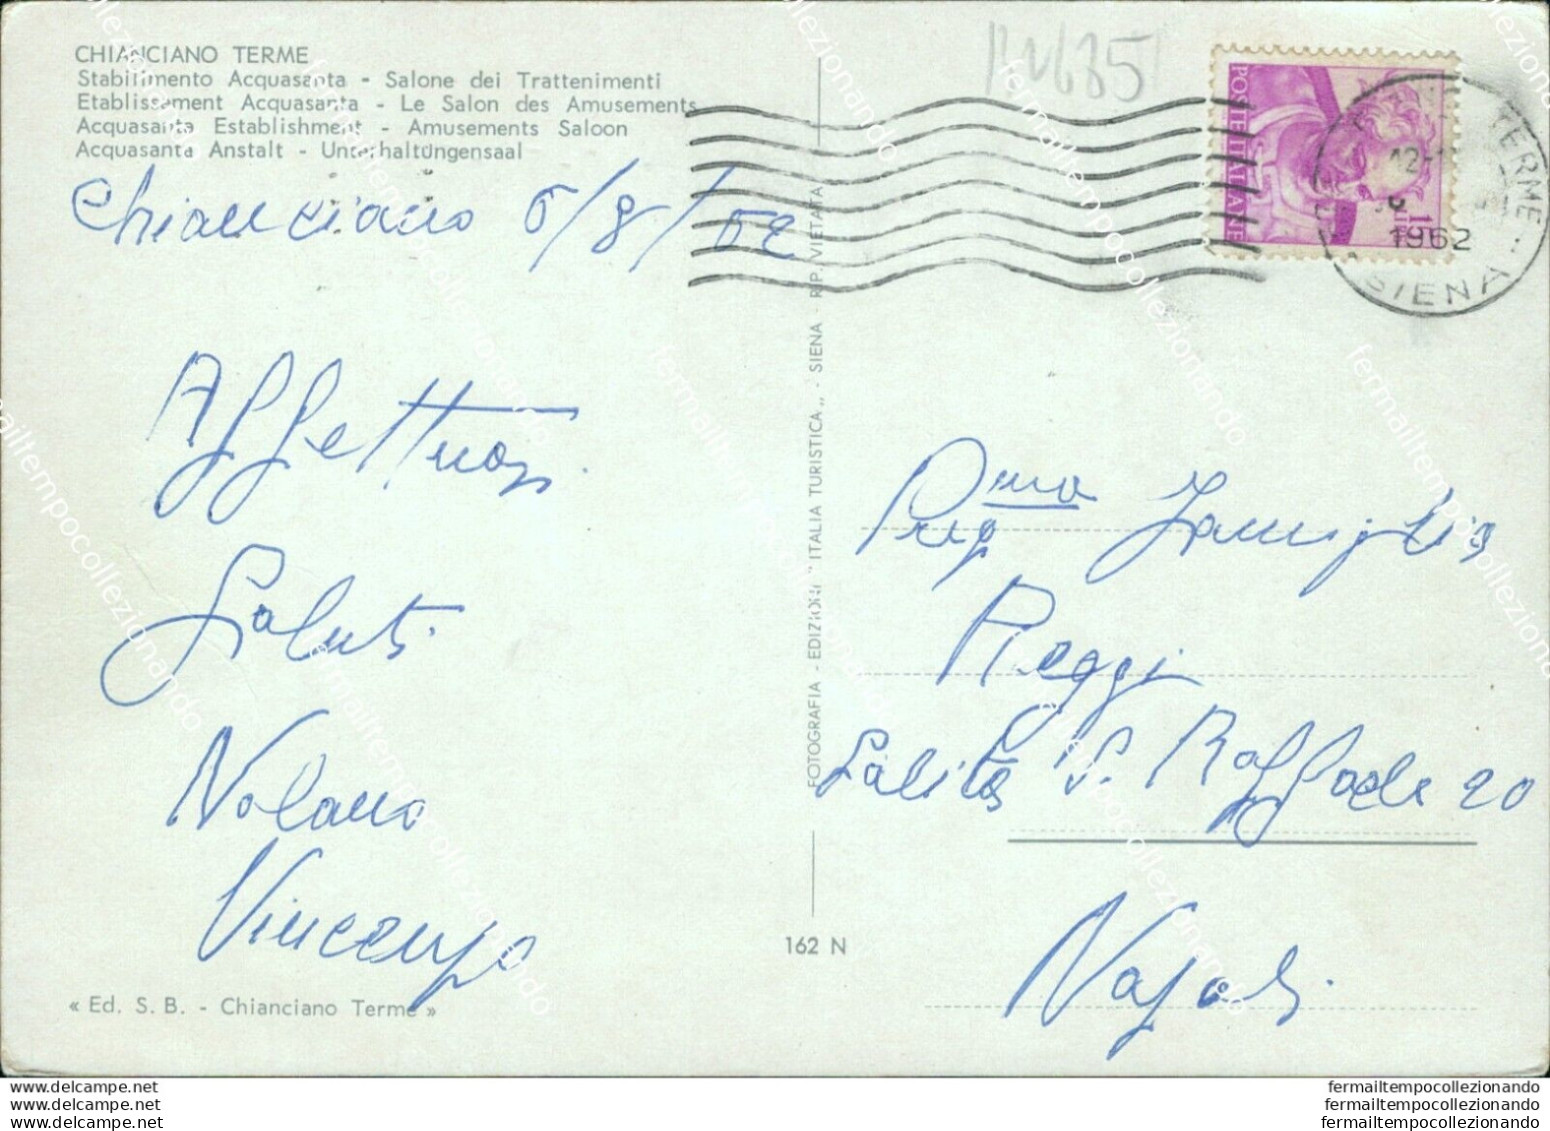 CHIANCIANO TERME
Stabilimento Acquasanta - Salone dei Trattenimenti
Etablissement Acquasanta - Le Salon des Amusements
Acquasanta Establishment - Amusements Saloon
Acquasanta Anstalt - Unterhaltungensaal
Chianciano 6/8/62
Affettuosi
Saluti
Nolano
Vincenzo
« Ed. S. B. - Chianciano Terme »
FOTOGRAFIA - EDIZIONI " ITALIA TURISTICA „ - SIENA - R.P. VIETATA
162 N
POSTE ITALIANE
TERME
1962
SIENA
Preg.ma Famiglia
Reggi
Salita S. Raffaele 20
Napoli
fermailtempocollezionando
fermailtempocollezionando
fermailtempocollezionando
www.delcampe.net
www.delcampe.net
www.delcampe.net